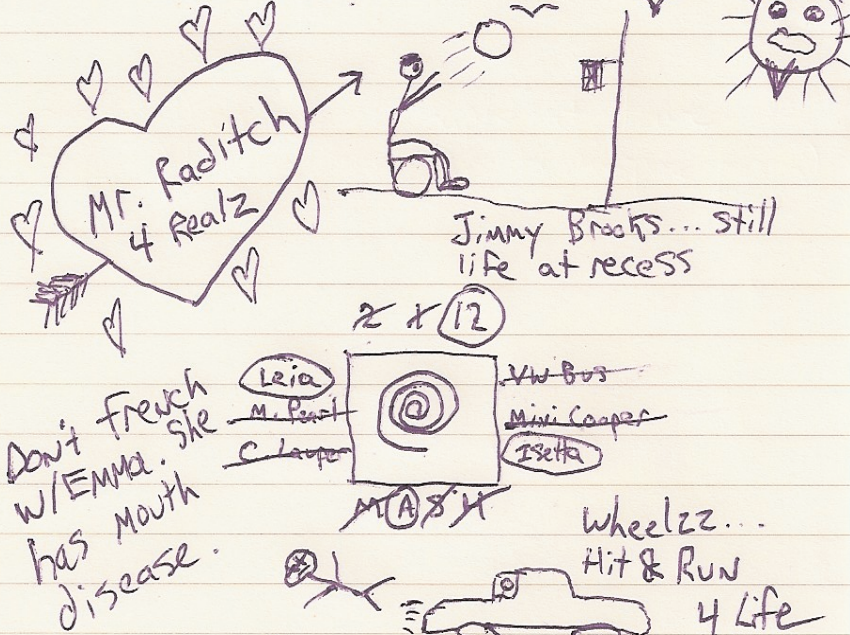 Mr. Raditch
4 Realz
Jimmy Brooks... still
life at recess
2 1 12
Leia
M.
C
VW Bus
Mini Cooper
Isetta
M A S H
Don't french
w/EMMA. She
has mouth
disease.
Wheelzz...
Hit & Run
4 Life